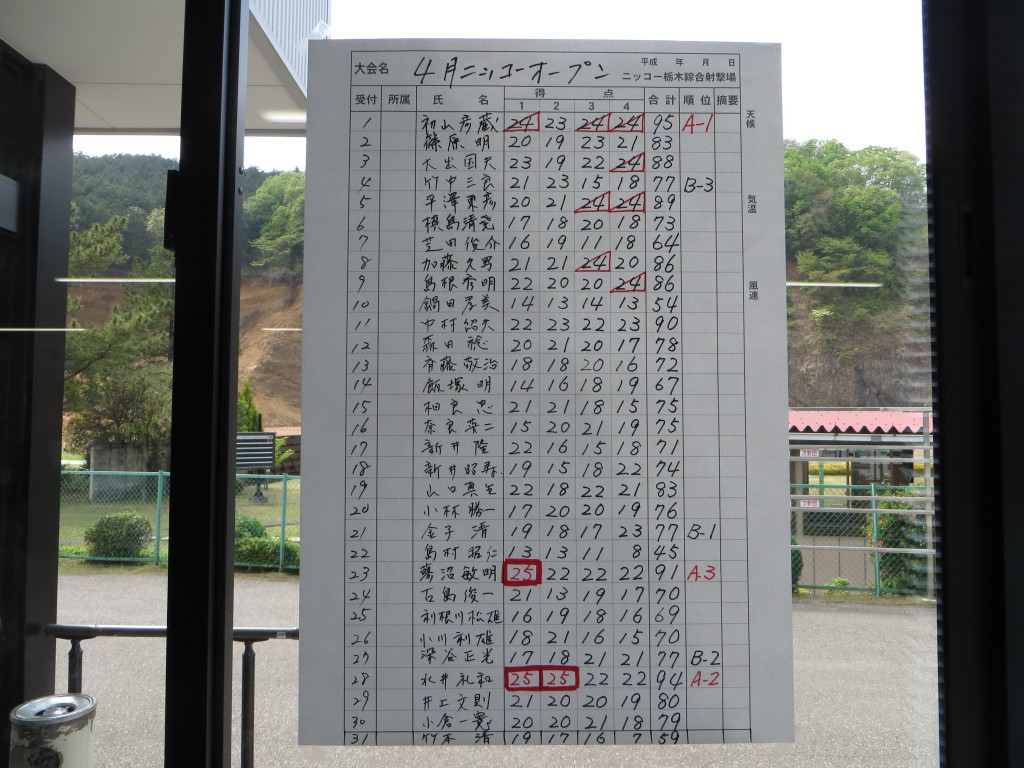 大会名 4月ニッコーオープン 平成 年 月 日
ニッコー栃木綜合射撃場
受付 所属 氏 名 得 点 合計 順位 摘要
1 2 3 4
天候
気温
風速
1 初山彦蔵 24 23 24 24 95 A-1
2 篠原明 20 19 23 21 83
3 大出国夫 23 19 22 24 88
4 竹中三良 21 23 15 18 77 B-3
5 平澤東彦 20 21 24 24 89
6 横島清 17 18 20 18 73
7 芝田俊介 16 19 11 18 64
8 加藤久男 21 21 24 20 86
9 島根秀明 22 20 20 24 86
10 鍋田 14 13 14 13 54
11 中村 夫 22 23 22 23 90
12 森田 聡 20 21 20 17 78
13 斉藤敬治 18 18 20 16 72
14 飯塚明 14 16 18 19 67
15 相良忠 21 21 18 15 75
16 奈良栄二 15 20 21 19 75
17 新井隆 22 16 15 18 71
18 新井昭 19 15 18 22 74
19 山口真 22 18 22 21 83
20 小林勝一 17 20 20 19 76
21 金子清 19 18 17 23 77 B-1
22 島村昭仁 13 13 11 8 45
23 沼敏明 25 22 22 22 91 A-3
24 島俊一 21 13 19 17 70
25 利根川松雄 16 19 18 16 69
26 小川利雄 18 21 16 15 70
27 深谷正光 17 18 21 21 77 B-2
28 水井礼和 25 25 22 22 94 A-2
29 井上文則 21 20 20 19 80
30 小倉一 20 20 21 18 79
31 竹本清 19 17 16 7 59